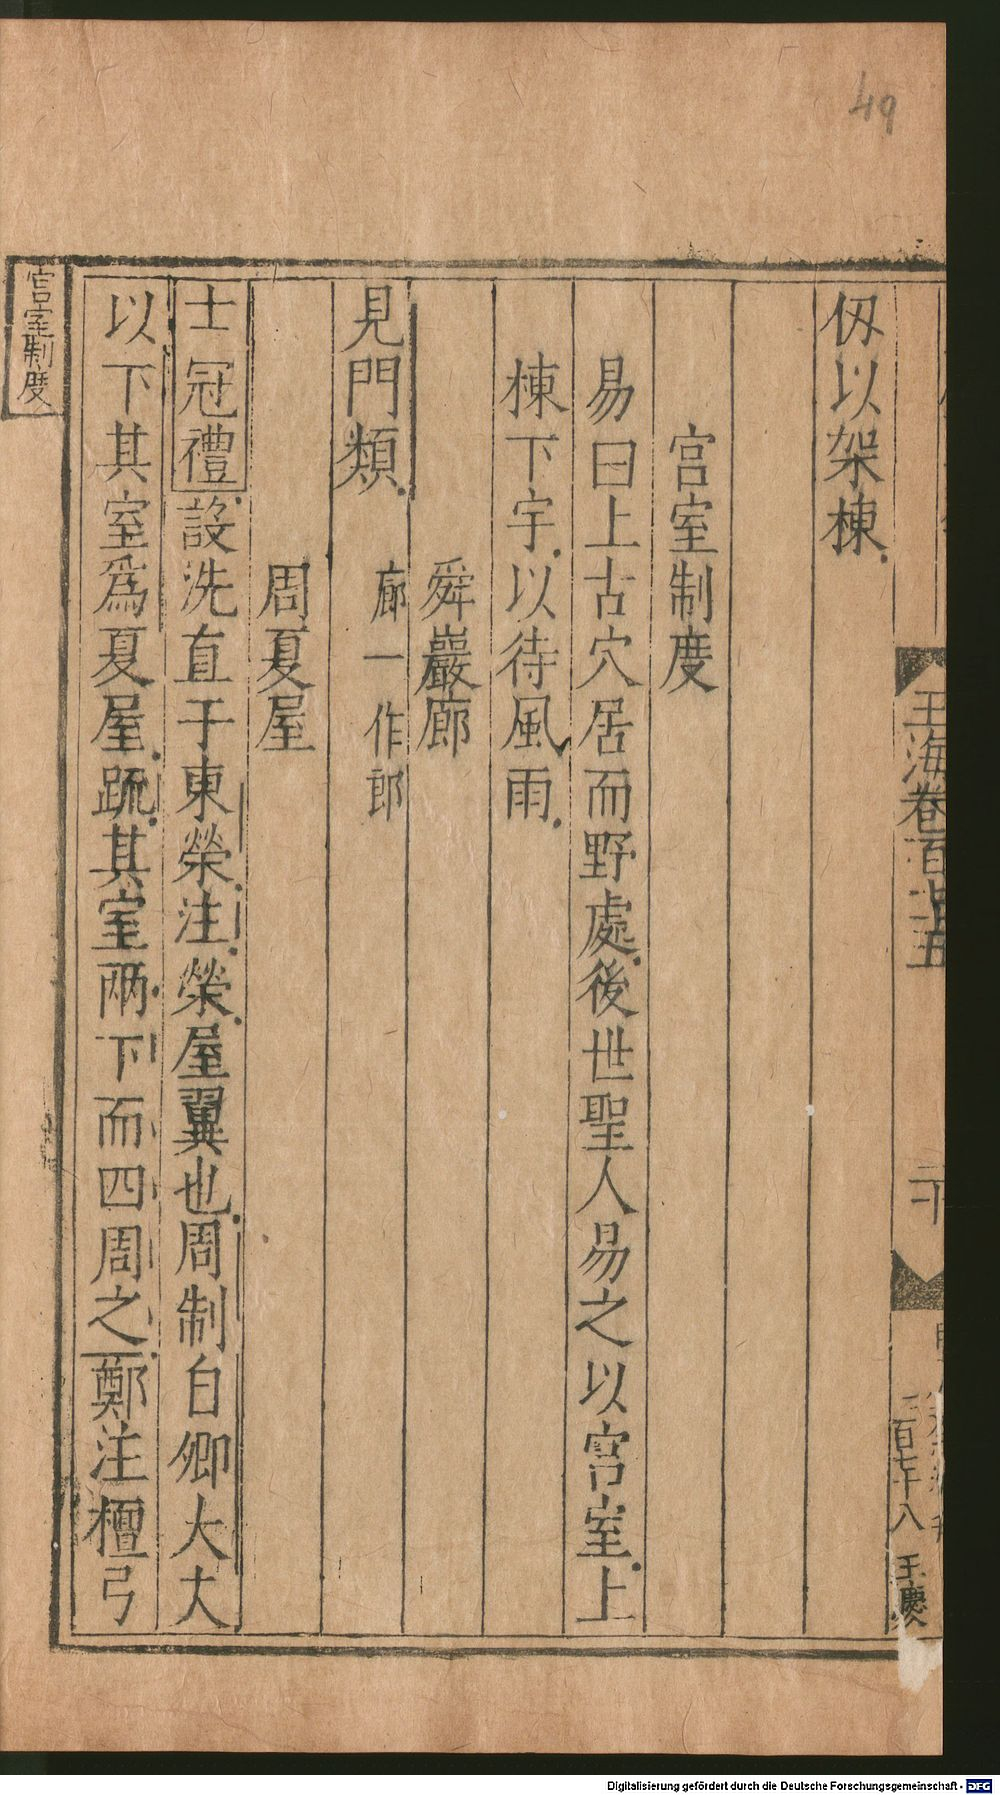 49
仭以架棟
宫室制度
易曰上古穴居而野處後世聖人易之以宫室上
棟下宇以待風雨
舜巖廊
見門類 廊一作郎
周夏屋
士冠禮設洗直于東榮注榮屋翼也周制自卿大夫
以下其室爲夏屋疏其室兩下而四周之鄭注檀弓
宫室制度
玉海卷百七十五
二十
二百七十八
王慶
Digitalisierung gefördert durch die Deutsche Forschungsgemeinschaft - DFG